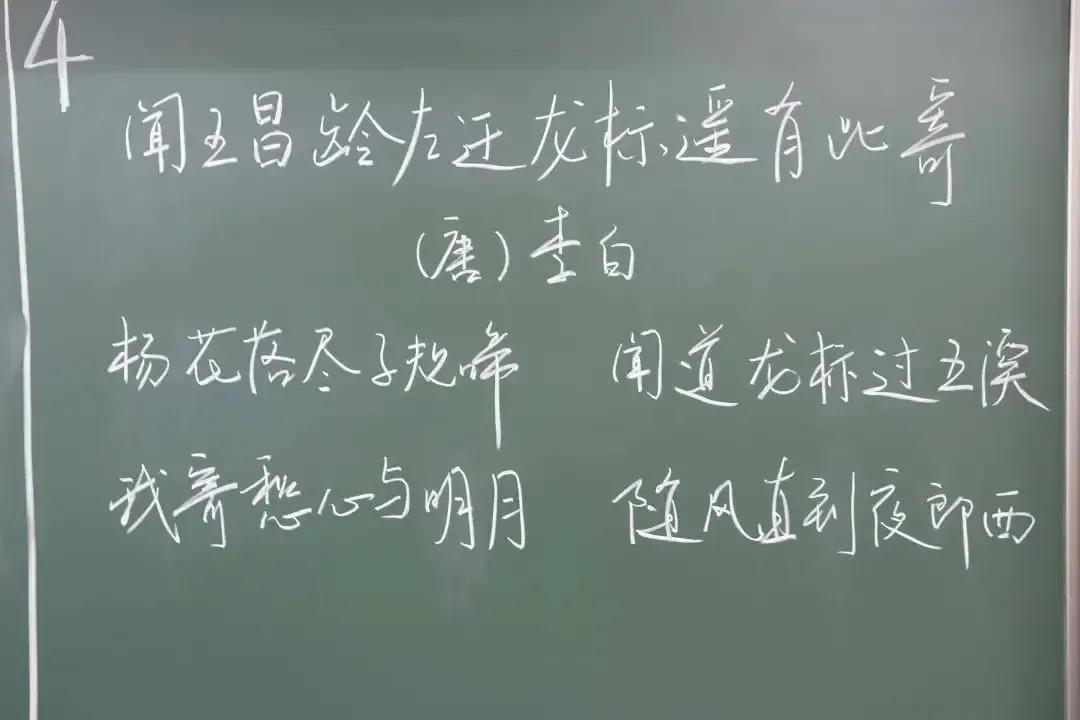 4
闻王昌龄左迁龙标遥有此寄
(唐)李白
杨花落尽子规啼 闻道龙标过五溪
我寄愁心与明月 随风直到夜郎西